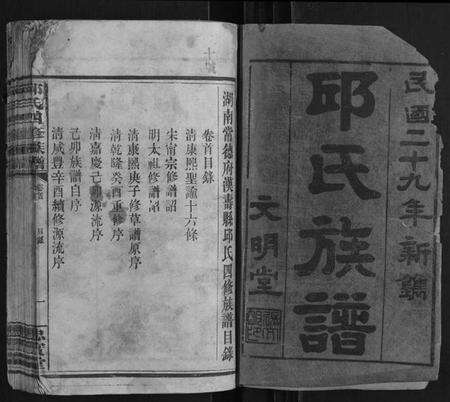 民國二十九年新鐫
邱氏族譜
文明堂
湖南常德府漢壽縣邱氏四修族譜目錄
卷首目錄
清康熙聖諭十六條
宋甯宗修譜詔
明太祖修譜詔
清康熙庚子修草譜原序
清乾隆癸酉重修序
清嘉慶己卯源流序
己卯族譜自序
清咸豐辛酉續修源流序
邱氏四修族譜
目錄
一